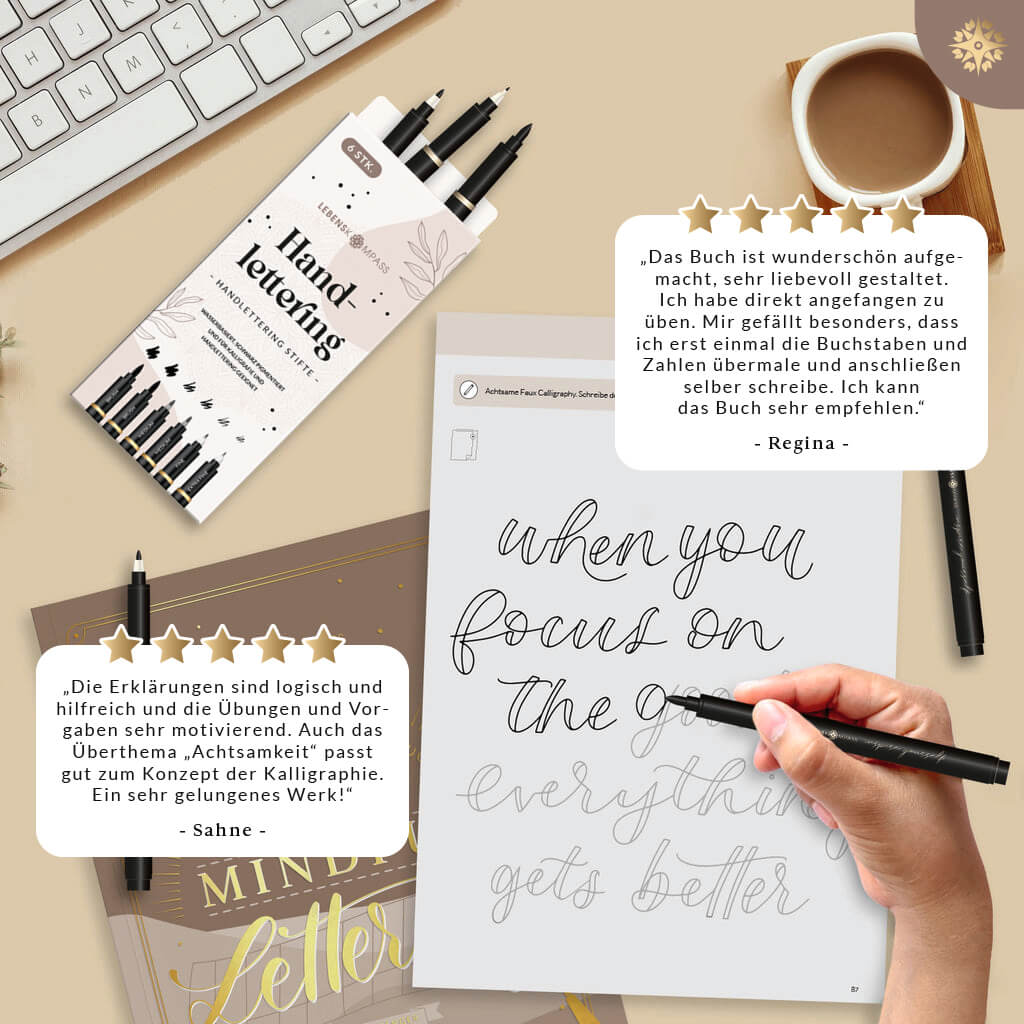 H
J
M
N
B
6 STK.
LEBENSKOMPASS
Hand-
lettering
- HANDLETTERING STIFTE -
WASSERBASIERT, SCHWARZ PIGMENTIERT
UND FÜR KALLIGRAFIE UND
HANDLETTERING GEEIGNET
„Das Buch ist wunderschön aufge-
macht, sehr liebevoll gestaltet.
Ich habe direkt angefangen zu
üben. Mir gefällt besonders, dass
ich erst einmal die Buchstaben und
Zahlen übermale und anschließen
selber schreibe. Ich kann
das Buch sehr empfehlen.“
- Regina -
Achtsame Faux Calligraphy. Schreibe
when you
focus on
the good
everything
gets better
87
„Die Erklärungen sind logisch und
hilfreich und die Übungen und Vor-
gaben sehr motivierend. Auch das
Überthema „Achtsamkeit“ passt
gut zum Konzept der Kalligraphie.
Ein sehr gelungenes Werk!“
- Sahne -
MINDFU
Letter